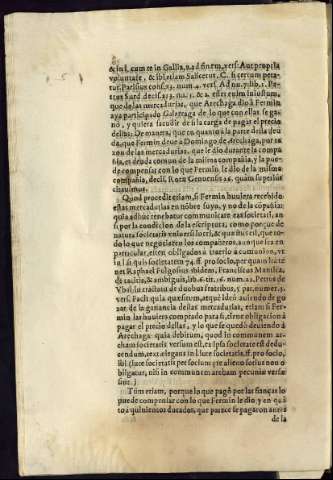 & in l. cum te in Gallia, n. ad finem, vers. Aut propria
voluntate, & ibi etiam Salicetus, C. si certum peta-
tur. Parisius cons. 23. num. 4. vers. Ad nu. 7. lib. 1. Pe-
trus Surd. decis. 313. nu. 1. & 2. est et enim injustum,
que de las mercadurias, que Arechaga dio à Fermin
aya participado Galarraga de lo que con ellas se ga-
nò, y quiera sacudir de si la carga de pagar el precio
dellas: De manera, que en quanto à la parte de la deu-
da, que Fermin deue a Domingo de Arechaga, por ra-
zon de las mercadurias, que le dio durante la compa-
ñia, es deuda comun de la misma compañia, y la pue-
de compensar con lo que Fermin le dio de la misma
compañia, decis. Rotæ Genuensis 46. quam su prà in-
chauimus.
Quod procedit etiam, si Fermin huuiera recebido
estas mercadurias en nõbre suyo, y no de la cõpañia:
quia adhuc tenebatur communicare eas societati, an-
si per la condicion de la escriptura, como porque de
natura societatis vniuersi lucri, & quæstus est, que to-
do lo que negociaren los compañeros, aunque sea en
particular, esten obligados a traerlo à cumulon, vt
in l. si quis societatem 74. ff. pro socio, per quam ita te-
net Raphael Fulgosius ibidem, Franciscus Mantica,
de tacitis, & ambiguis, lib. 6. tit. 16. num. 21. Petrus de
Vbal. in tractatu de duobus fratribus, 5. par. numer. 3.
vers. Facit quia quæsitum, atque ideò auiendo de go-
zar de la ganancia dellas mercadurias, etiam si Fermin
las huuiera comprado para si, tiene obligacion à
pagar el precio dellas, y lo que se quedò deuiendo à
Arechaga quia debitum, quod in communem ar-
cham societatis versum est, ex ipsa societate est dedu-
cendum, text. elegans in l. iure societatis. ff. pro socio,
ibi (iure societatis per socium ære alieno socius non o-
bligatur, nisi in communem archam pecuniæ versæ
sint.)
Tum etiam, porque lo que pagò por las fianças lo
puede compensar con lo que Fermin le dio, y en quã
to à quinientos ducados, que parece se pagaron acerca
de la